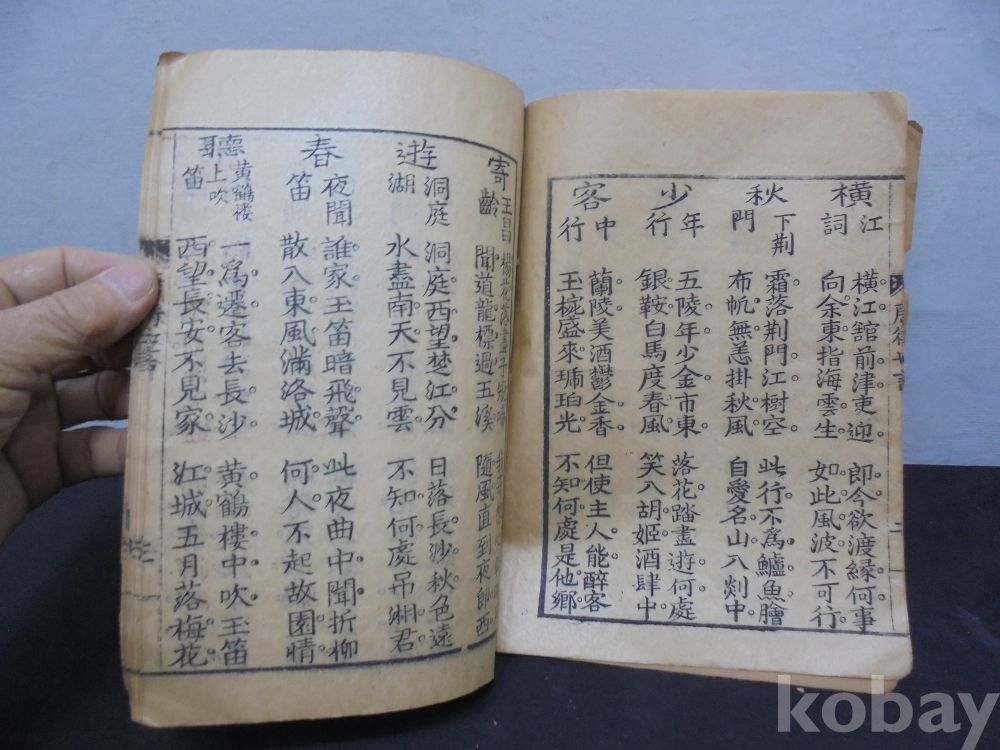 橫江詞
橫江舘前津吏迎
向余東指海雲生
即今欲渡緣何事
如此風波不可行
秋下荆門
霜落荆門江樹空
布帆無恙掛秋風
此行不爲鱸魚膾
自愛名山入剡中
少年行
五陵年少金市東
銀鞍白馬度春風
落花踏盡遊何處
笑入胡姬酒肆中
客中行
蘭陵美酒鬱金香
玉椀盛來琥珀光
但使主人能醉客
不知何處是他鄉
寄王昌齡
楊花落盡子規啼
聞道龍標過五溪
隨風直到夜郎西
遊洞庭湖
洞庭西望楚江分
水盡南天不見雲
日落長沙秋色遠
不知何處吊湘君
春夜聞笛
誰家玉笛暗飛聲
散入東風滿洛城
此夜曲中聞折柳
何人不起故園情
聽黃鶴樓上吹笛
一爲遷客去長沙
西望長安不見家
黃鶴樓中吹玉笛
江城五月落梅花
kobay